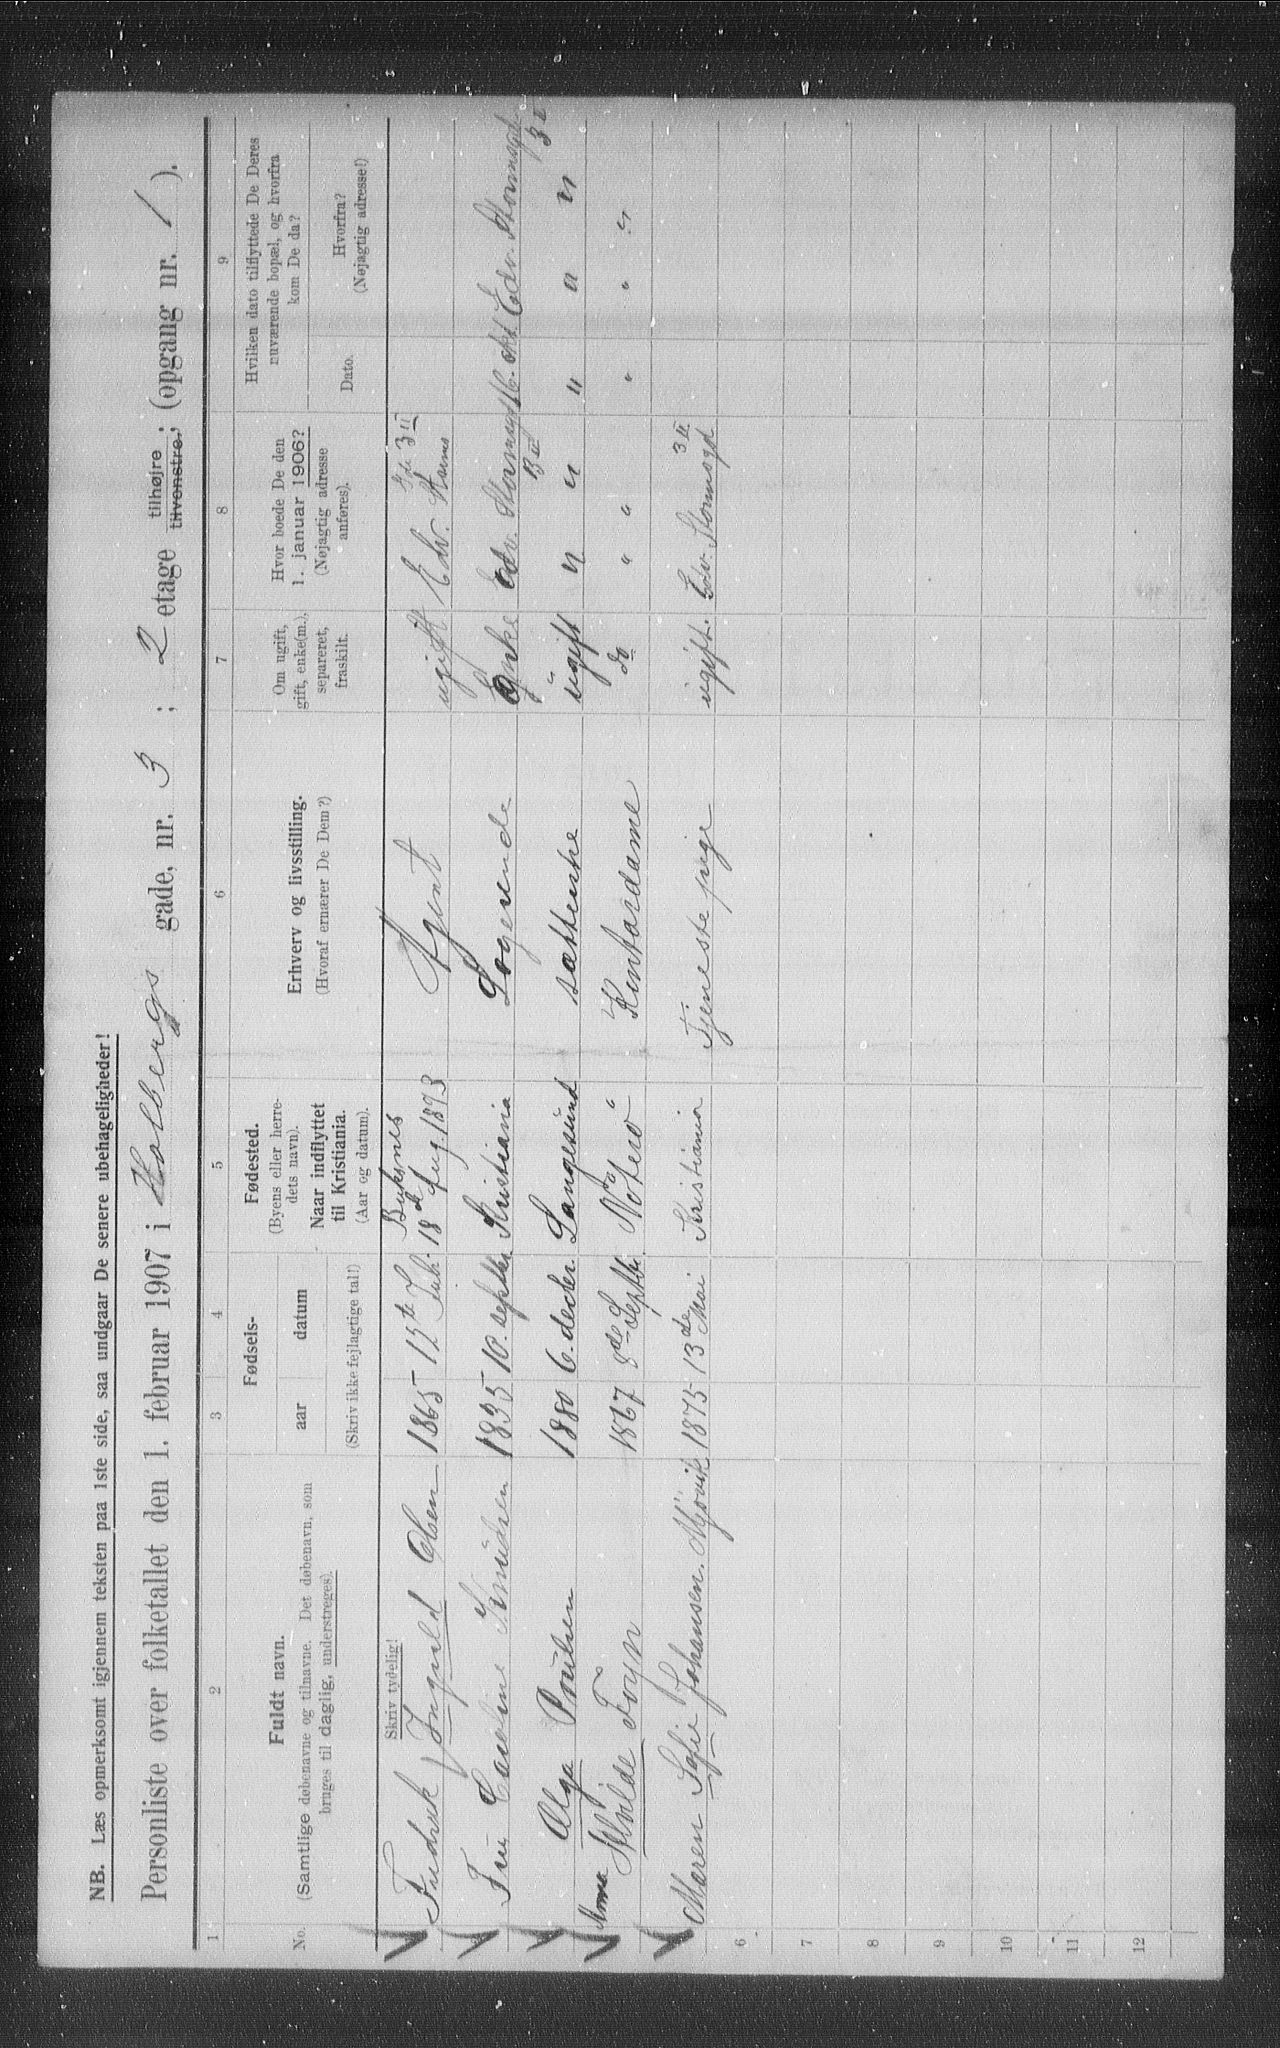 NB. Læs opmerksomt igjennem teksten paa 1ste side, saa undgaar De senere ubehageligheder!
Personliste over folketallet den 1. februar 1907 i Holbergs gade, nr. 3; 2 etage tilhøjre tilvenstre; (opgang nr. 1).
1 2 3 4 5 6 7 8 9
No.
Fuldt navn.
(Samtlige døbenavne og tilnavne. Det døbenavn, som
bruges til daglig, understreges).
Fødsels-
aar datum
(Skriv ikke fejlagtige tal!)
Fødested.
(Byens eller herre-
dets navn).
Naar indflyttet
til Kristiania.
(Aar og datum).
Erhverv og livsstilling.
(Hvoraf ernærer De Dem?)
Om ugift,
gift, enke(m.),
separeret,
fraskilt.
Hvor boede De den
1. januar 1906?
(Nøjagtig adresse
anføres).
Hvilken dato tilflyttede De Deres
nuværende bopæl, og hvorfra
kom De da?
Dato.
Hvorfra?
(Nøjagtig adresse!)
Skriv tydelig!
Fredrik Ingvald Olsen 1865 Buksnes 18de Aug. 1893 Agent ugift Edv. Storms gde 3 II
Fru Caroline Knudsen 1835 10. septbr. Kristiania Logerende Enke Edv. Stormsgd 3 II 16. okt Edv. Stormsgd. 3 II
Olga Poulsen 1880 6. decbr. Langesund ugift " " " " "
Anna Hvilde Foyn 1867 8de Septbr. Nøterø " Kontordame do " " " " "
Maren Sofie Johansen. Mjøvik 1875 13de Mai Kristiania Tjenestepige ugift. Edv. Stormsgd 3 II
6
7
8
9
10
11
12